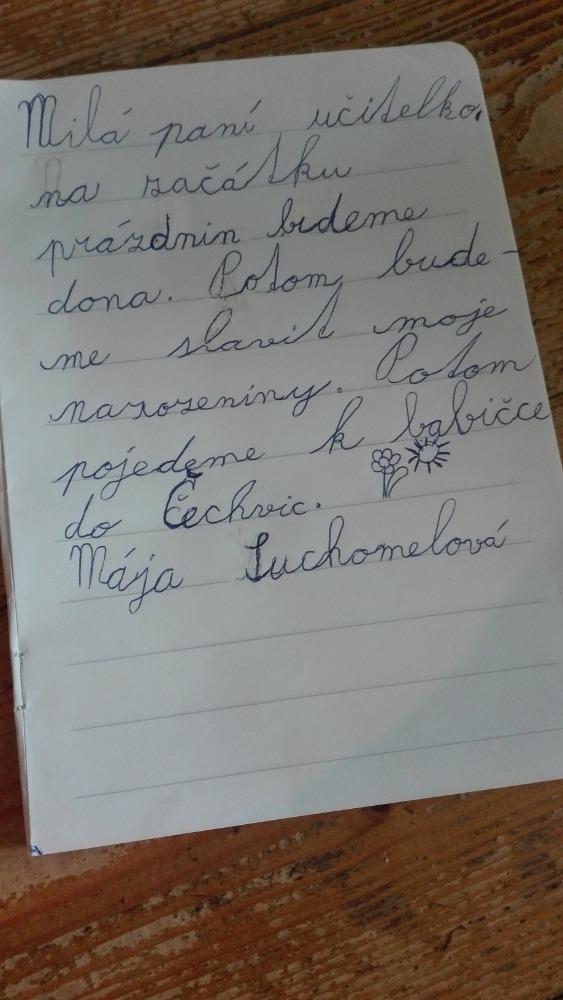 Milá paní učitelko,
na začátku
prázdnin budeme
dona. Potom bude-
me slavit moje
narozeniny. Potom
pojedeme k babičce
do Čechvic.
Mája Suchomelová